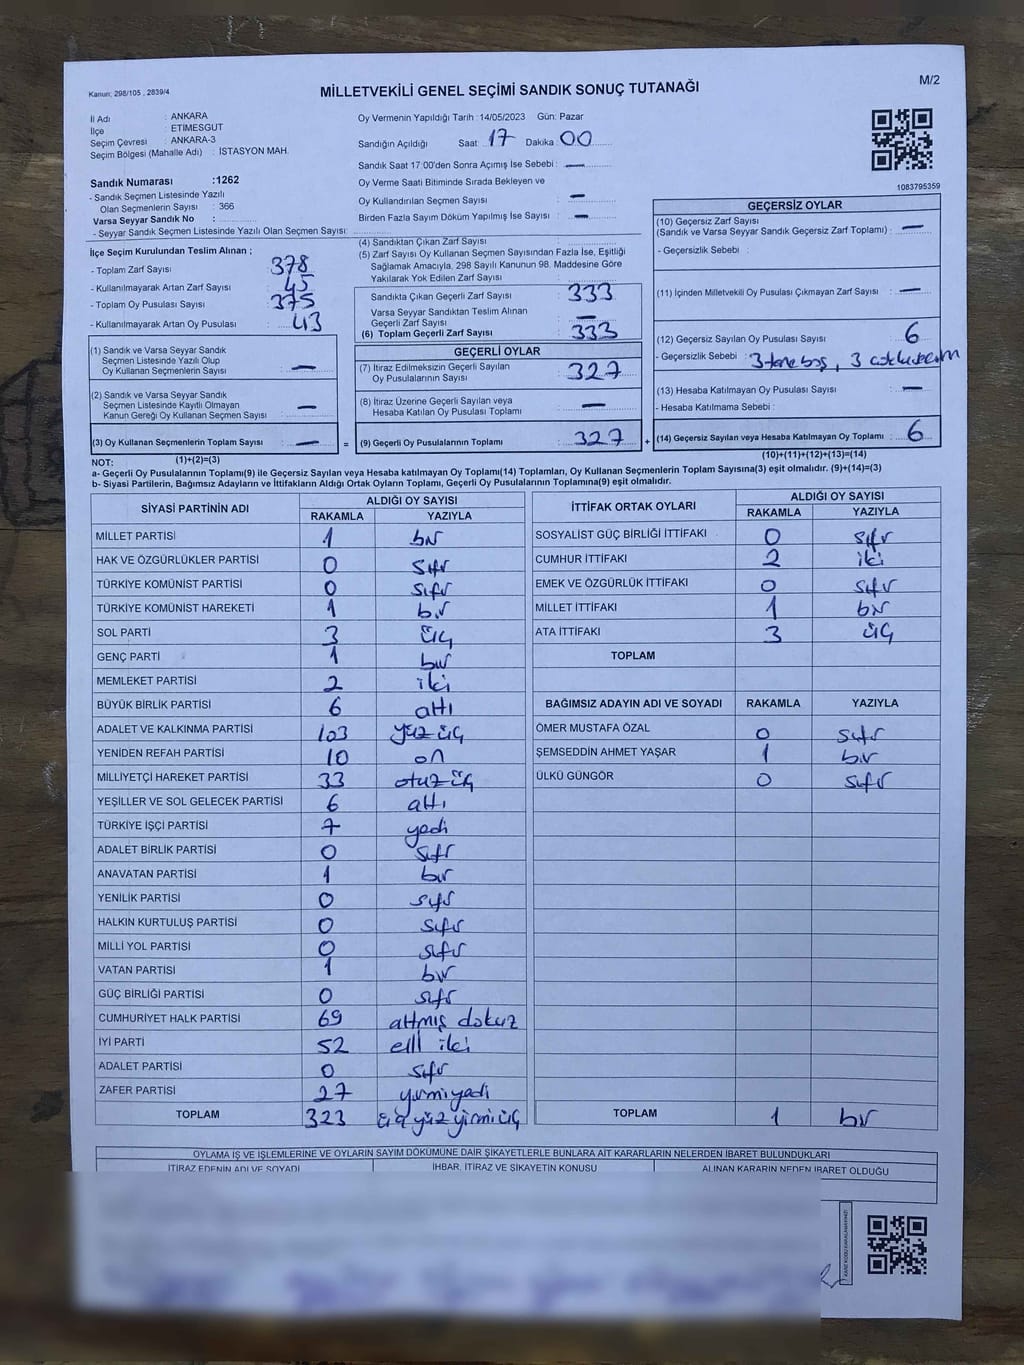 Kanun: 298/105 , 2839/4
MİLLETVEKİLİ GENEL SEÇİMİ SANDIK SONUÇ TUTANAĞI
M/2
İl Adı : ANKARA
İlçe : ETİMESGUT
Seçim Çevresi : ANKARA-3
Seçim Bölgesi (Mahalle Adı) : İSTASYON MAH.
Sandık Numarası :1262
- Sandık Seçmen Listesinde Yazılı
Olan Seçmenlerin Sayısı : 366
Varsa Seyyar Sandık No :
- Seyyar Sandık Seçmen Listesinde Yazılı Olan Seçmen Sayısı:
Oy Vermenin Yapıldığı Tarih :14/05/2023 Gün: Pazar
Sandığın Açıldığı Saat 17 Dakika 00
Sandık Saat 17:00'den Sonra Açımış İse Sebebi : —
Oy Verme Saati Bitiminde Sırada Bekleyen ve
Oy Kullandırılan Seçmen Sayısı : —
Birden Fazla Sayım Döküm Yapılmış İse Sayısı : —
1083795359
İlçe Seçim Kurulundan Teslim Alınan ;
- Toplam Zarf Sayısı : 378
- Kullanılmayarak Artan Zarf Sayısı : 45
- Toplam Oy Pusulası Sayısı : 375
- Kullanılmayarak Artan Oy Pusulası : 43
(1) Sandık ve Varsa Seyyar Sandık
Seçmen Listesinde Yazılı Olup
Oy Kullanan Seçmenlerin Sayısı : —
(2) Sandık ve Varsa Seyyar Sandık
Seçmen Listesinde Kayıtlı Olmayan
Kanun Gereği Oy Kullanan Seçmen Sayısı : —
(3) Oy Kullanan Seçmenlerin Toplam Sayısı : — =
(1)+(2)=(3)
(4) Sandıktan Çıkan Zarf Sayısı :
(5) Zarf Sayısı Oy Kullanan Seçmen Sayısından Fazla İse, Eşitliği
Sağlamak Amacıyla, 298 Sayılı Kanunun 98. Maddesine Göre
Yakılarak Yok Edilen Zarf Sayısı :
Sandıkta Çıkan Geçerli Zarf Sayısı : 333
Varsa Seyyar Sandıktan Teslim Alınan
Geçerli Zarf Sayısı : —
(6) Toplam Geçerli Zarf Sayısı : 333
GEÇERLİ OYLAR
(7) İtiraz Edilmeksizin Geçerli Sayılan
Oy Pusulalarının Sayısı : 327
(8) İtiraz Üzerine Geçerli Sayılan veya
Hesaba Katılan Oy Pusulası Toplamı : —
(9) Geçerli Oy Pusulalarının Toplamı : 327 +
GEÇERSİZ OYLAR
(10) Geçersiz Zarf Sayısı
(Sandık ve Varsa Seyyar Sandık Geçersiz Zarf Toplamı) : —
- Geçersizlik Sebebi :
(11) İçinden Milletvekili Oy Pusulası Çıkmayan Zarf Sayısı : —
(12) Geçersiz Sayılan Oy Pusulası Sayısı : 6
- Geçersizlik Sebebi : 3 tane boş, 3
(13) Hesaba Katılmayan Oy Pusulası Sayısı : —
- Hesaba Katılmama Sebebi :
(14) Geçersiz Sayılan veya Hesaba Katılmayan Oy Toplamı : 6
(10)+(11)+(12)+(13)=(14)
NOT:
a- Geçerli Oy Pusulalarının Toplamı(9) ile Geçersiz Sayılan veya Hesaba katılmayan Oy Toplamı(14) Toplamları, Oy Kullanan Seçmenlerin Toplam Sayısına(3) eşit olmalıdır. (9)+(14)=(3)
b- Siyasi Partilerin, Bağımsız Adayların ve İttifakların Aldığı Ortak Oyların Toplamı, Geçerli Oy Pusulalarının Toplamına(9) eşit olmalıdır.
SİYASİ PARTİNİN ADI ALDIĞI OY SAYISI
RAKAMLA YAZIYLA
MİLLET PARTİSİ 1 bir
HAK VE ÖZGÜRLÜKLER PARTİSİ 0 sıfır
TÜRKİYE KOMÜNİST PARTİSİ 0 sıfır
TÜRKİYE KOMÜNİST HAREKETİ 1 bir
SOL PARTİ 3 üç
GENÇ PARTİ 1 bir
MEMLEKET PARTİSİ 2 iki
BÜYÜK BİRLİK PARTİSİ 6 altı
ADALET VE KALKINMA PARTİSİ 103 yüz üç
YENİDEN REFAH PARTİSİ 10 on
MİLLİYETÇİ HAREKET PARTİSİ 33 otuz üç
YEŞİLLER VE SOL GELECEK PARTİSİ 6 altı
TÜRKİYE İŞÇİ PARTİSİ 7 yedi
ADALET BİRLİK PARTİSİ 0 sıfır
ANAVATAN PARTİSİ 1 bir
YENİLİK PARTİSİ 0 sıfır
HALKIN KURTULUŞ PARTİSİ 0 sıfır
MİLLİ YOL PARTİSİ 0 sıfır
VATAN PARTİSİ 1 bir
GÜÇ BİRLİĞİ PARTİSİ 0 sıfır
CUMHURİYET HALK PARTİSİ 69 altmış dokuz
İYİ PARTİ 52 elli iki
ADALET PARTİSİ 0 sıfır
ZAFER PARTİSİ 27 yirmiyedi
TOPLAM 323 üç yüz yirmi üç
İTTİFAK ORTAK OYLARI ALDIĞI OY SAYISI
RAKAMLA YAZIYLA
SOSYALİST GÜÇ BİRLİĞİ İTTİFAKI 0 sıfır
CUMHUR İTTİFAKI 2 iki
EMEK VE ÖZGÜRLÜK İTTİFAKI 0 sıfır
MİLLET İTTİFAKI 1 bir
ATA İTTİFAKI 3 üç
TOPLAM
BAĞIMSIZ ADAYIN ADI VE SOYADI RAKAMLA YAZIYLA
ÖMER MUSTAFA ÖZAL 0 sıfır
ŞEMSEDDİN AHMET YAŞAR 1 bir
ÜLKÜ GÜNGÖR 0 sıfır
TOPLAM 1 bir
OYLAMA İŞ VE İŞLEMLERİNE VE OYLARIN SAYIM DÖKÜMÜNE DAİR ŞİKAYETLERLE BUNLARA AİT KARARLARIN NELERDEN İBARET BULUNDUKLARI
İTİRAZ EDENİN ADI VE SOYADI İHBAR, İTİRAZ VE ŞİKAYETİN KONUSU ALINAN KARARIN NEDEN İBARET OLDUĞU